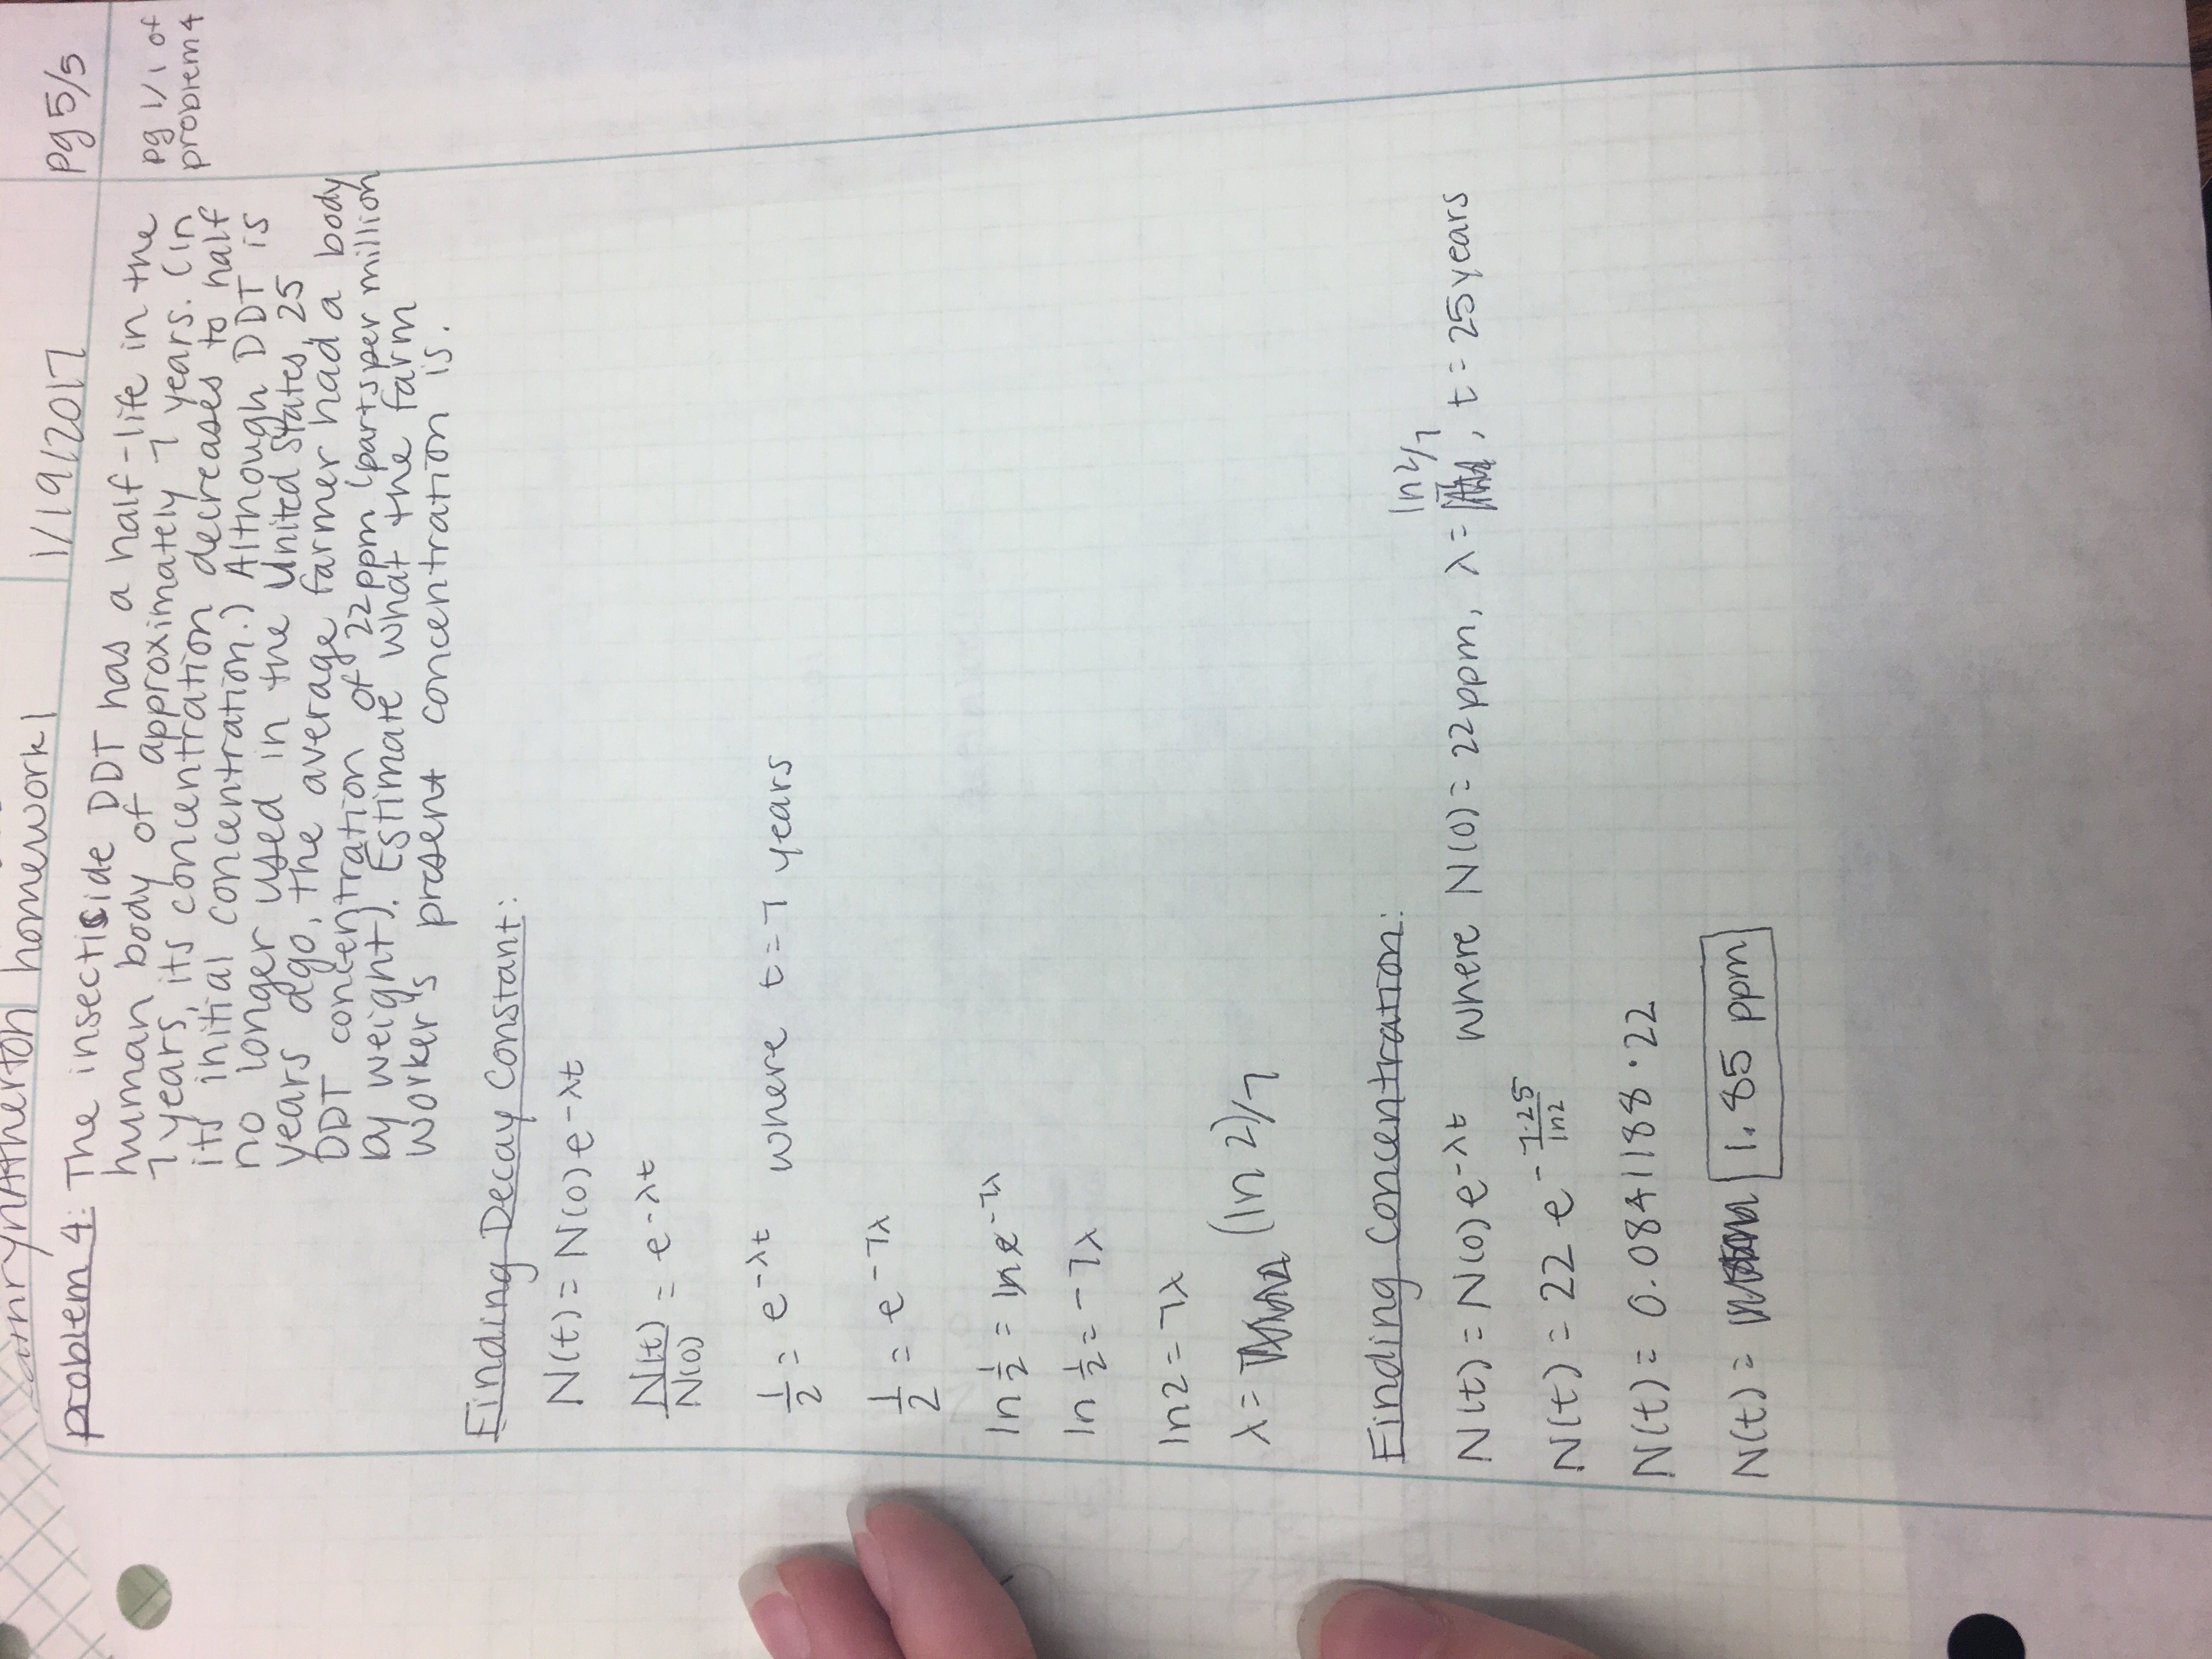 homework 1
1/19/2017
pg 5/5
problem 4: The insecticide DDT has a half-life in the
human body of approximately 7 years. (In
7 years, its concentration decreases to half
its initial concentration.) Although DDT is
no longer used in the United States, 25
years ago, the average farmer had a body
DDT concentration of 22ppm (parts per million
by weight). Estimate what the farm
worker's present concentration is.
pg 1/1 of
problem 4
Finding Decay Constant:
N(t) = N(0)e^-λt
N(t)/N(0) = e^-λt
1/2 = e^-λt where t = 7 years
1/2 = e^-7λ
ln 1/2 = ln e^-7λ
ln 1/2 = -7λ
ln2 = 7λ
λ = (ln 2)/7
Finding Concentration:
ln2/7
N(t) = N(0)e^-λt where N(0) = 22ppm, λ = , t = 25 years
N(t) = 22 e^- 7·25/ln2
N(t) = 0.0841188 · 22
N(t) = 1.85 ppm